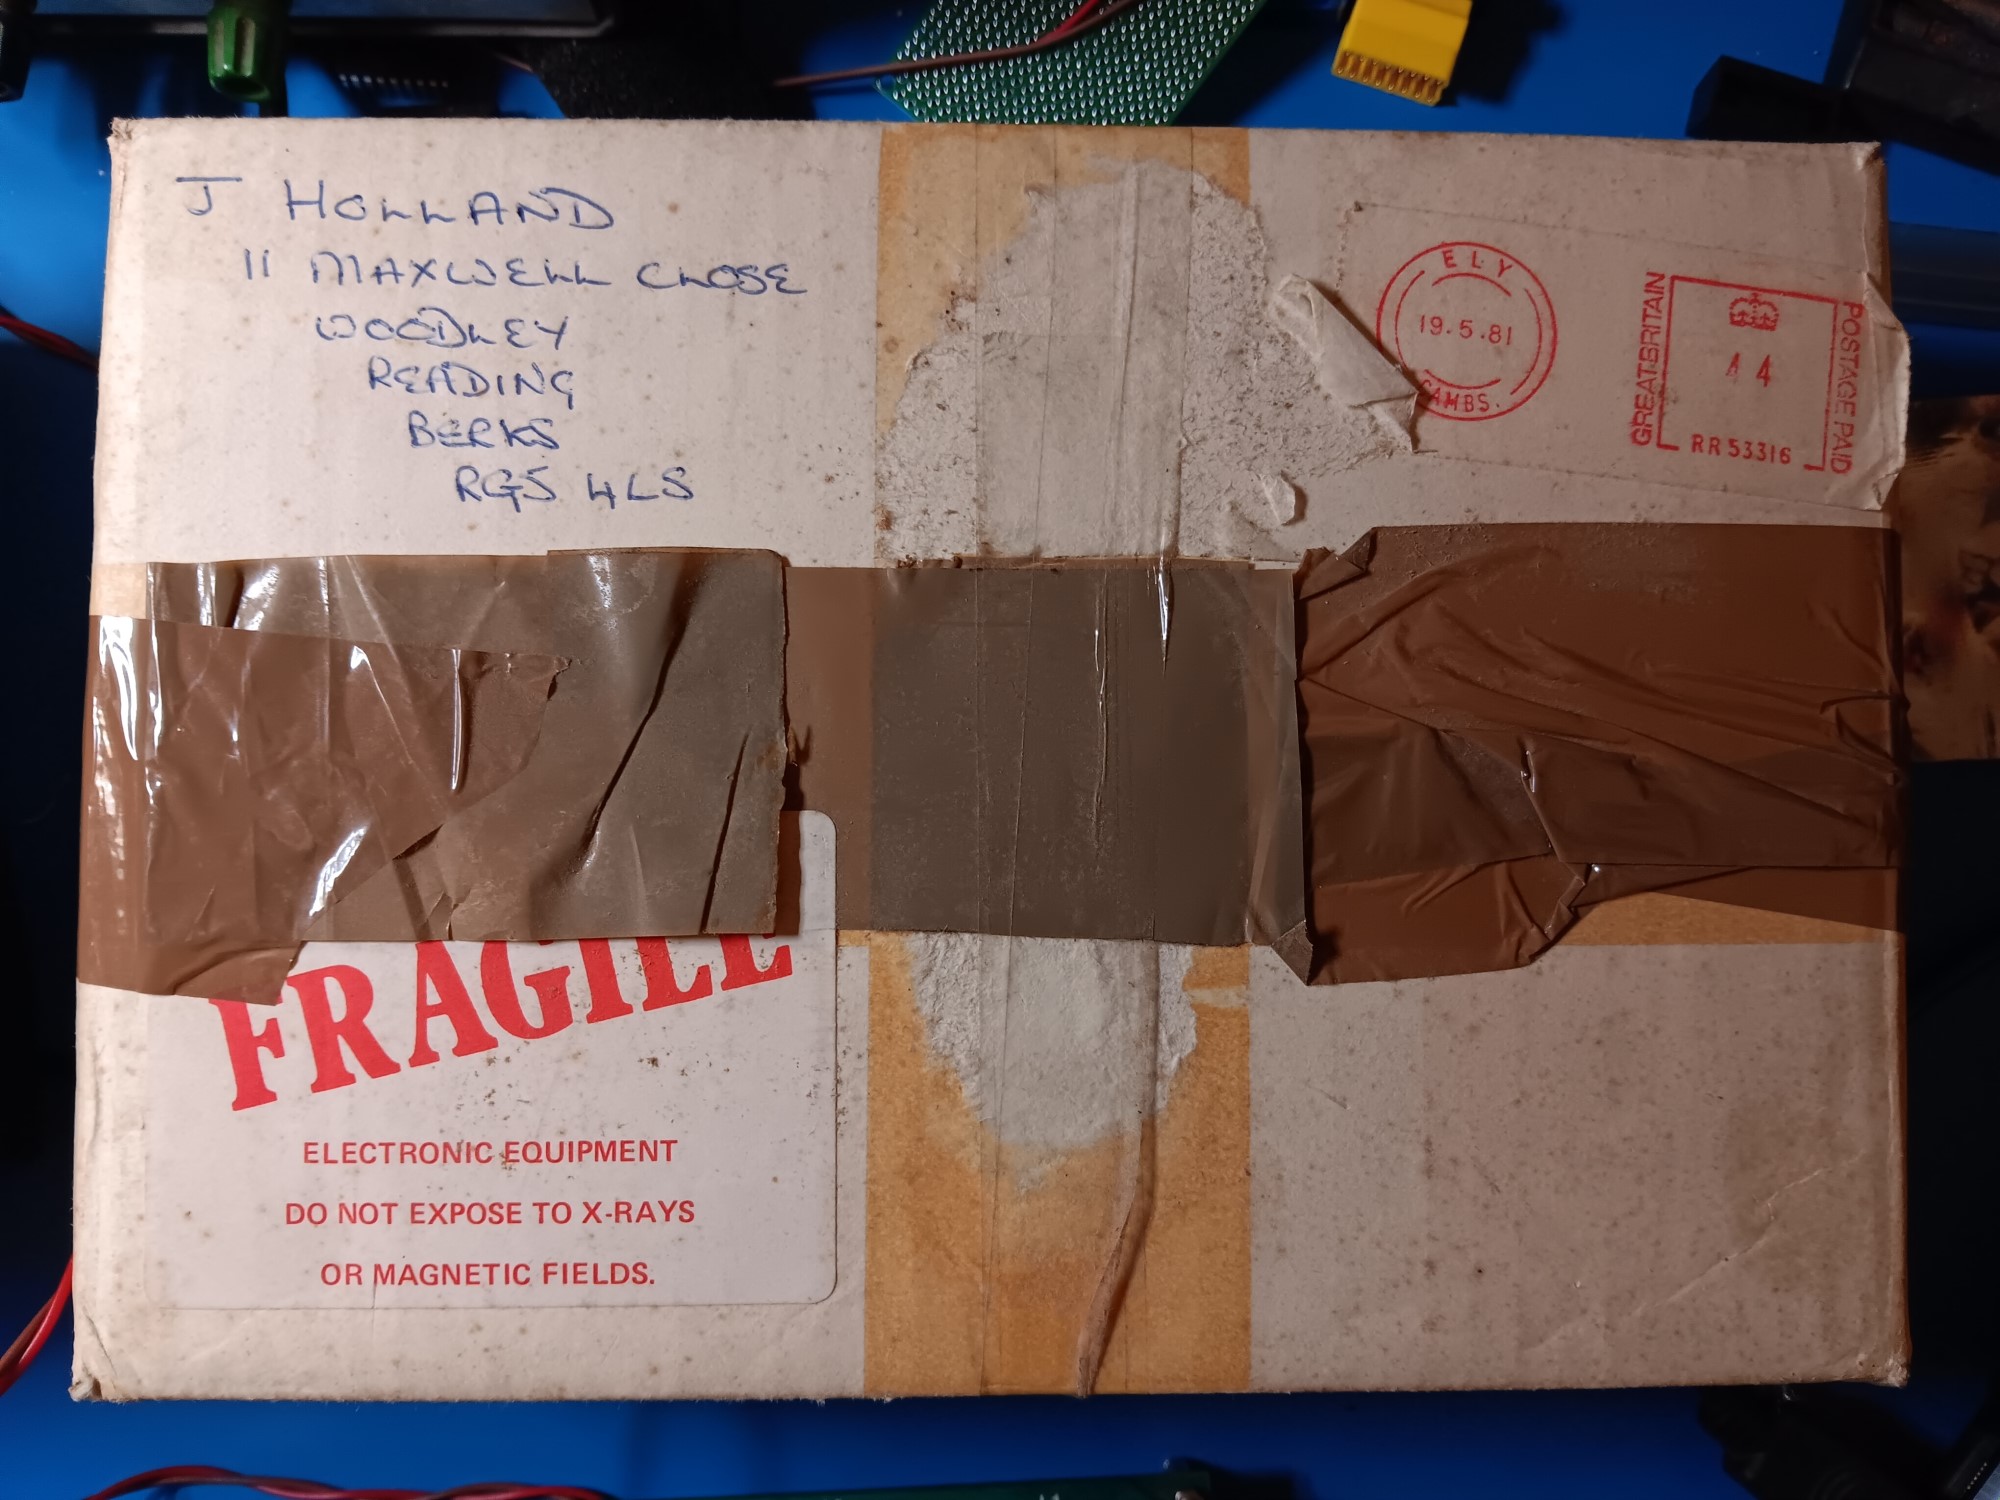 J HOLLAND
11 MAXWELL CLOSE
WOODLEY
READING
BERKS
RG5 4LS
ELY
19.5.81
CAMBS.
GREAT BRITAIN
44
RR 53316
POSTAGE PAID
FRAGILE
ELECTRONIC EQUIPMENT
DO NOT EXPOSE TO X-RAYS
OR MAGNETIC FIELDS.